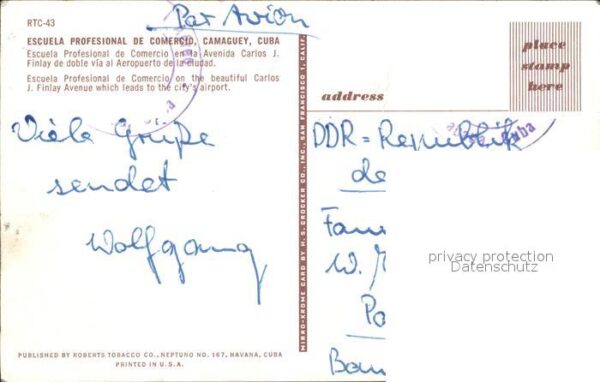 RTC-43
Par Avion
ESCUELA PROFESIONAL DE COMERCIO, CAMAGUEY, CUBA
Escuela Profesional de Comercio en la Avenida Carlos J.
Finlay de doble vía al Aeropuerto de la ciudad.
Escuela Profesional de Comercio on the beautiful Carlos
J. Finlay Avenue which leads to the city's airport.
Viele Grüße
sendet
Wolfgang
PUBLISHED BY ROBERTS TOBACCO CO., NEPTUNO NO. 167, HAVANA, CUBA
PRINTED IN U.S.A.
MIRRO-KROME CARD BY H. S. CROCKER CO., INC., SAN FRANCISCO 1, CALIF.
place
stamp
here
address
Cuba
DDR = Republik
de
Fam
W.
Po
privacy protection
Datenschutz